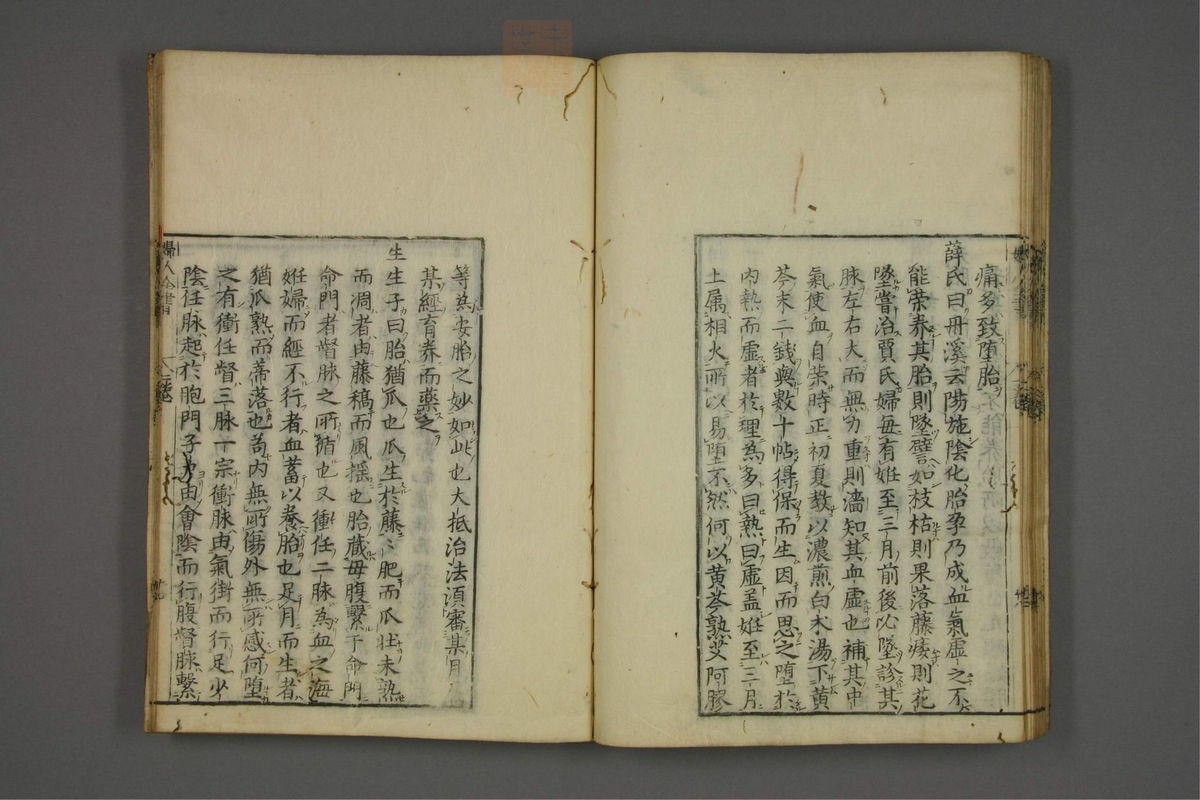 痛多致墮胎
薛氏曰丹溪云陽施陰化胎孕乃成血氣虛乏不
能荣养其胎則墜譬如枝枯則果落藤痿則花
墜嘗治賈氏婦每有姙至三月前後必墜診其
脉左右大而無力重則濇知其血虛也補其中
氣使血自荣時正初夏教以濃煎白术湯下黄
芩末二錢與數十帖得保而生因而思之墮於
内熱而虛者於理為多曰熱曰虛盖姙至三月
土属相火所以易墮不然何以黄芩熟艾阿膠
等為安胎之妙如此也大抵治法湏審某月
某經育养而藥之
生生子曰胎猶瓜也瓜生於藤〻肥而瓜壮未熟
而凋者由藤稿而風摇也胎蔵母腹繫于命門
命門者督脉之所循也又衝任二脉為血之海
姙婦而經不行者血蓄以養胎也足月而生者
猶瓜熟而蒂落也苟内無所傷外無所感何墮
之有衝任督三脉一宗衝脉由氣街而行足少
陰任脉起於胞門子户由會陰而行腹督脉繫
婦人